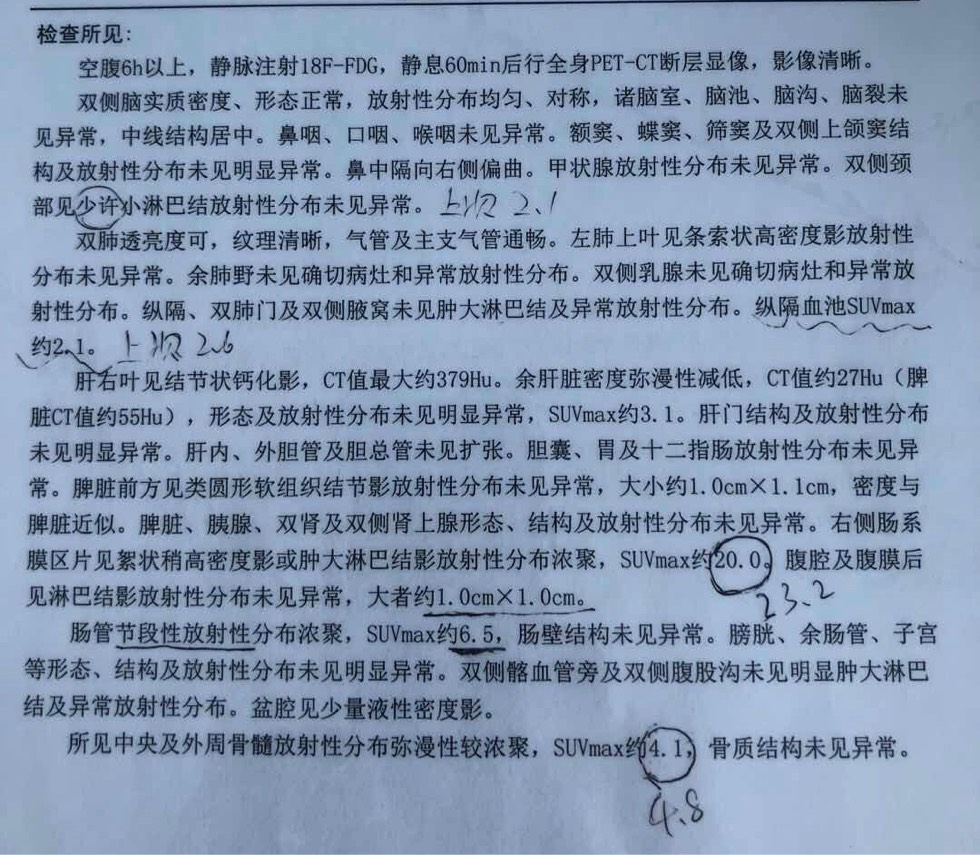 检查所见：
空腹6h以上，静脉注射18F-FDG，静息60min后行全身PET-CT断层显像，影像清晰。
双侧脑实质密度、形态正常，放射性分布均匀、对称，诸脑室、脑池、脑沟、脑裂未
见异常，中线结构居中。鼻咽、口咽、喉咽未见异常。额窦、蝶窦、筛窦及双侧上颌窦结
构及放射性分布未见明显异常。鼻中隔向右侧偏曲。甲状腺放射性分布未见异常。双侧颈
部见少许小淋巴结放射性分布未见异常。上次2.1
双肺透亮度可，纹理清晰，气管及主支气管通畅。左肺上叶见条索状高密度影放射性
分布未见异常。余肺野未见确切病灶和异常放射性分布。双侧乳腺未见确切病灶和异常放
射性分布。纵隔、双肺门及双侧腋窝未见肿大淋巴结及异常放射性分布。纵隔血池SUVmax
约2.1。上次2.6
肝右叶见结节状钙化影，CT值最大约379Hu。余肝脏密度弥漫性减低，CT值约27Hu（脾
脏CT值约55Hu），形态及放射性分布未见明显异常，SUVmax约3.1。肝门结构及放射性分布
未见明显异常。肝内、外胆管及胆总管未见扩张。胆囊、胃及十二指肠放射性分布未见异
常。脾脏前方见类圆形软组织结节影放射性分布未见异常，大小约1.0cm×1.1cm，密度与
脾脏近似。脾脏、胰腺、双肾及双侧肾上腺形态、结构及放射性分布未见异常。右侧肠系
膜区片见絮状稍高密度影或肿大淋巴结影放射性分布浓聚，SUVmax约20.0。腹腔及腹膜后
23.2
见淋巴结影放射性分布未见异常，大者约1.0cm×1.0cm。
肠管节段性放射性分布浓聚，SUVmax约6.5，肠壁结构未见异常。膀胱、余肠管、子宫
等形态、结构及放射性分布未见明显异常。双侧髂血管旁及双侧腹股沟未见明显肿大淋巴
结及异常放射性分布。盆腔见少量液性密度影。
所见中央及外周骨髓放射性分布弥漫性较浓聚，SUVmax约4.1，骨质结构未见异常。
4.8